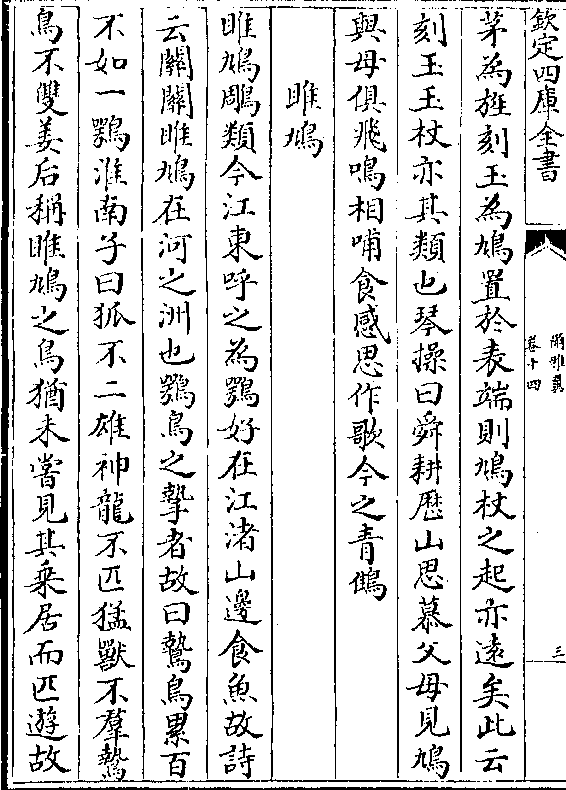 欽定四庫全書
爾雅翼
卷十四
三
茅為旌刻玉為鳩置於表端則鳩杖之起亦遠矣此云
刻玉玉杖亦其類也琴操曰舜耕歷山思慕父母見鳩
與母俱飛鳴相哺食感思作歌今之青鵻
雎鳩
雎鳩鵰類今江東呼之為鶚好在江渚山邊食魚故詩
云關關雎鳩在河之洲也鶚鳥之摯者故曰鷙鳥累百
不如一鶚淮南子曰狐不二雄神龍不匹猛獸不羣鷙
鳥不雙姜后稱雎鳩之鳥猶未嘗見其乗居而匹遊故